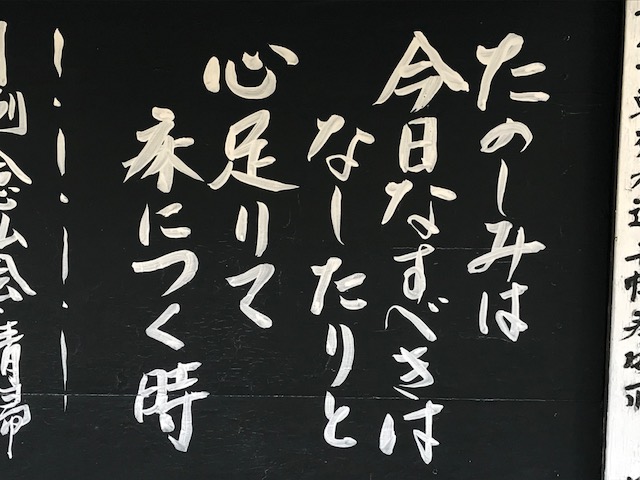 たのしみは
今日なすべきは
なしたりと
心足りて
床につく時
例念仏会・清掃